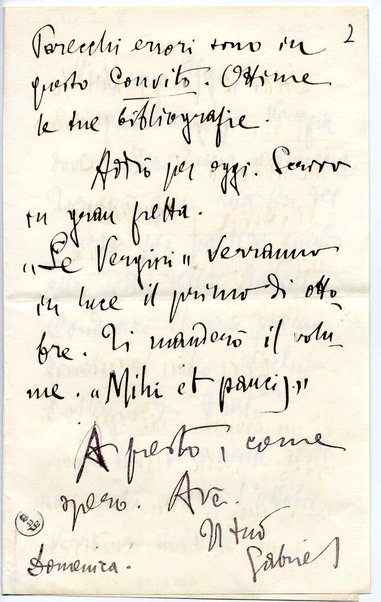 2
Parecchi errori sono in
questo Convito. Ottime
le tue bibliografie.
Addio per oggi. Scrivo
in gran fretta.
"Le Vergini" verranno
in luce il primo di otto-
bre. Ti manderò il volu-
me. "Mihi et paucis"
A presto, come
spero. Ave.
Il tuo
Gabriel
Domenica.